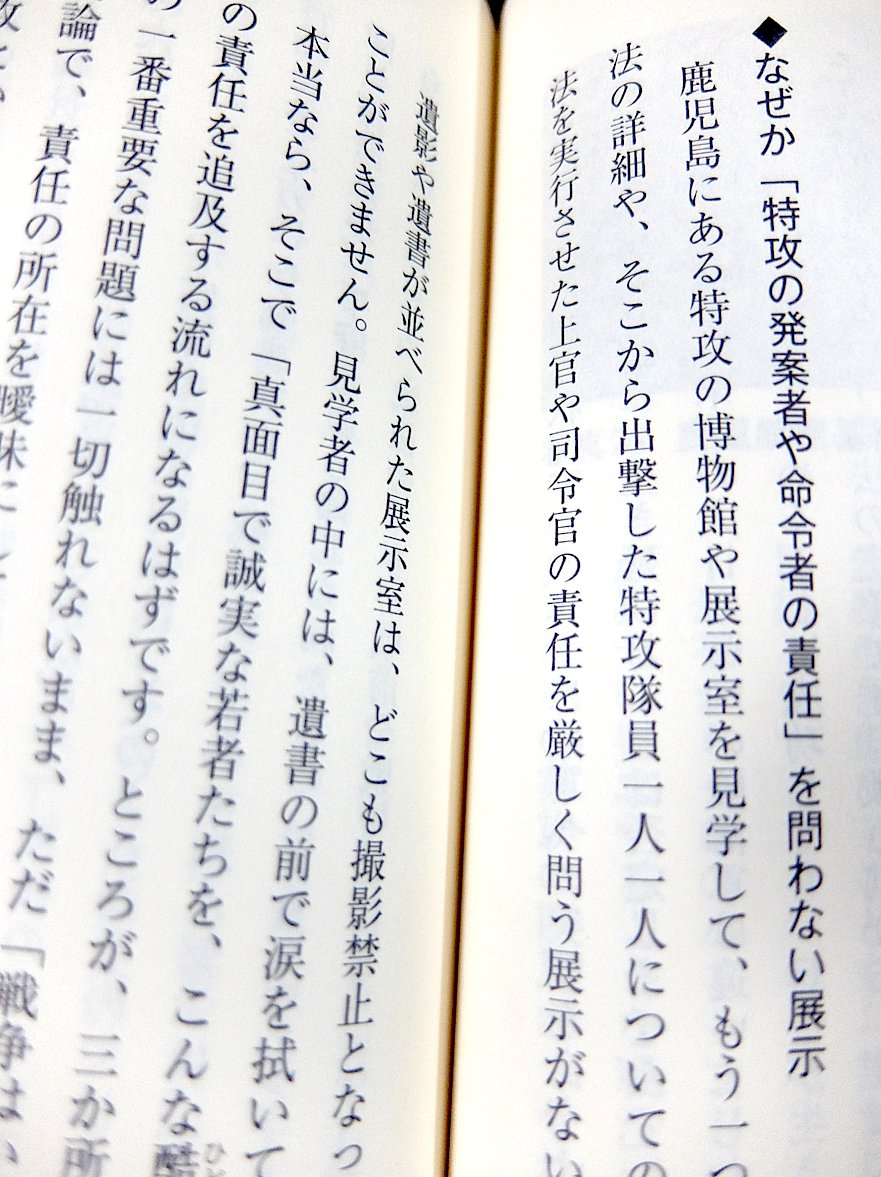 ◆なぜか「特攻の発案者や命令者の責任」を問わない展示
鹿児島にある特攻の博物館や展示室を見学して、もう一つ
法の詳細や、そこから出撃した特攻隊員一人一人についての
法を実行させた上官や司令官の責任を厳しく問う展示がない
遺影や遺書が並べられた展示室は、どこも撮影禁止となっ
ことができません。見学者の中には、遺書の前で涙を拭いて
本当なら、そこで「真面目で誠実な若者たちを、こんな酷
ひど
の責任を追及する流れになるはずです。ところが、三か所
の一番重要な問題には一切触れないまま、ただ「戦争はい
論で、責任の所在を曖昧にし